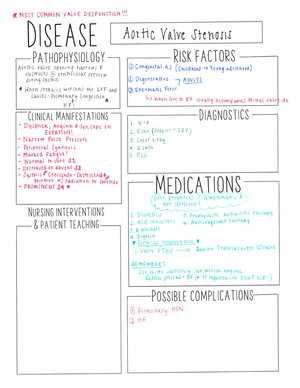 * MOST COMMON VALVE DYSFUNCTION!!!
DISEASE
Aortic Valve Stenosis
PATHOPHYSIOLOGY
Aortic valve opening narrows &
obstructs
ventricular outflow
during systole
* When stenosis worsens the LVF and
causes: Pulmonary Congestion &
HF!
RISK FACTORS
① Congenital AS (Childhood → Young Adulthood)
② Degenerative → ADULTS
③ Rheumatic Fever
↳ When due to RF usually accompanies Mitral Valve dz.
CLINICAL MANIFESTATIONS
• DYSPNEA, ANGINA & SYNCOPE ON
EXERTION!
• Narrow Pulse Pressure
• Peripheral Cyanosis
• Marked Fatigue!
• Normal to Soft S1
• Decreased or absent S2
• Systolic Crescendo-Decrescendo
murmur w/ radiation to carotids
• PROMINENT S4 *
DIAGNOSTICS
1. H+P
2. Echo (Doppler + TEE)
3. Chest X-ray
4. Exam
5. ECG
MEDICATIONS
poor prognosis if symptomatic &
not corrected!
1. Diuretics
2. ACE inhibitors
3. B-Blockers
4. Digoxin
5. Prophylactic antibiotic therapy
6. Anticoagulant therapy
* Surgical Intervention *
1. Valve
REMEMBER:
Use Nitro cautiously can worsen angina,
NURSING INTERVENTIONS
& PATIENT TEACHING
POSSIBLE COMPLICATIONS
① Pulmonary HTN
② HF